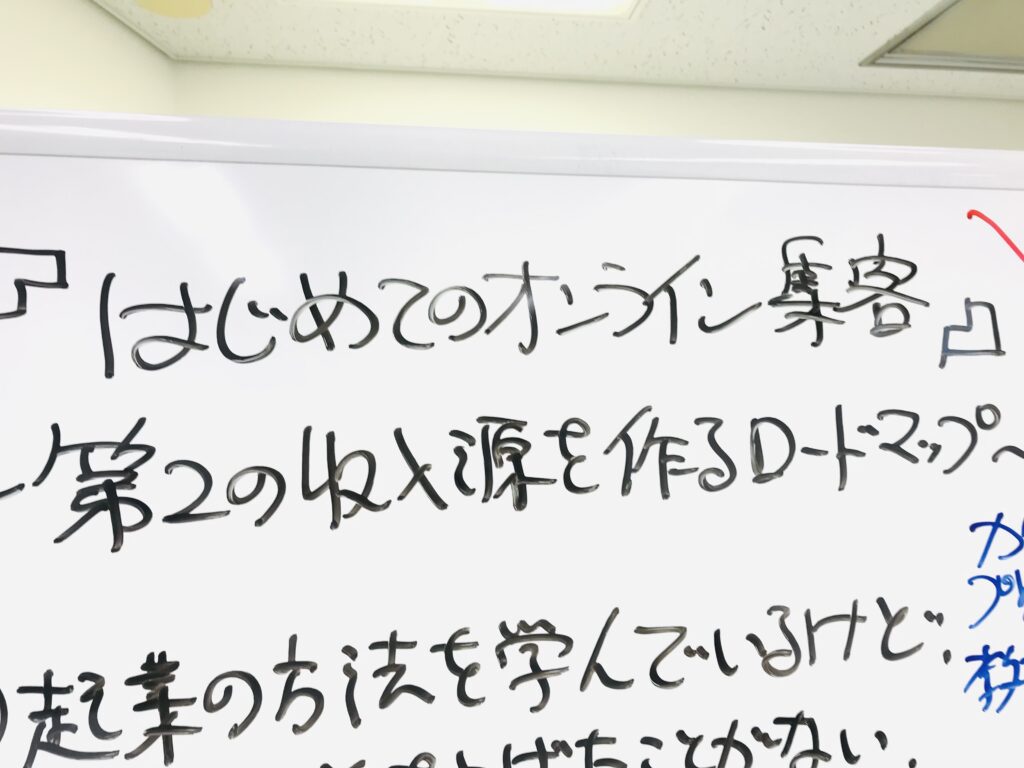 『はじめてのオンライン集客』
～第2の収入源を作るロードマップ～
起業の方法を学んでいるけど、
上げたことがない。